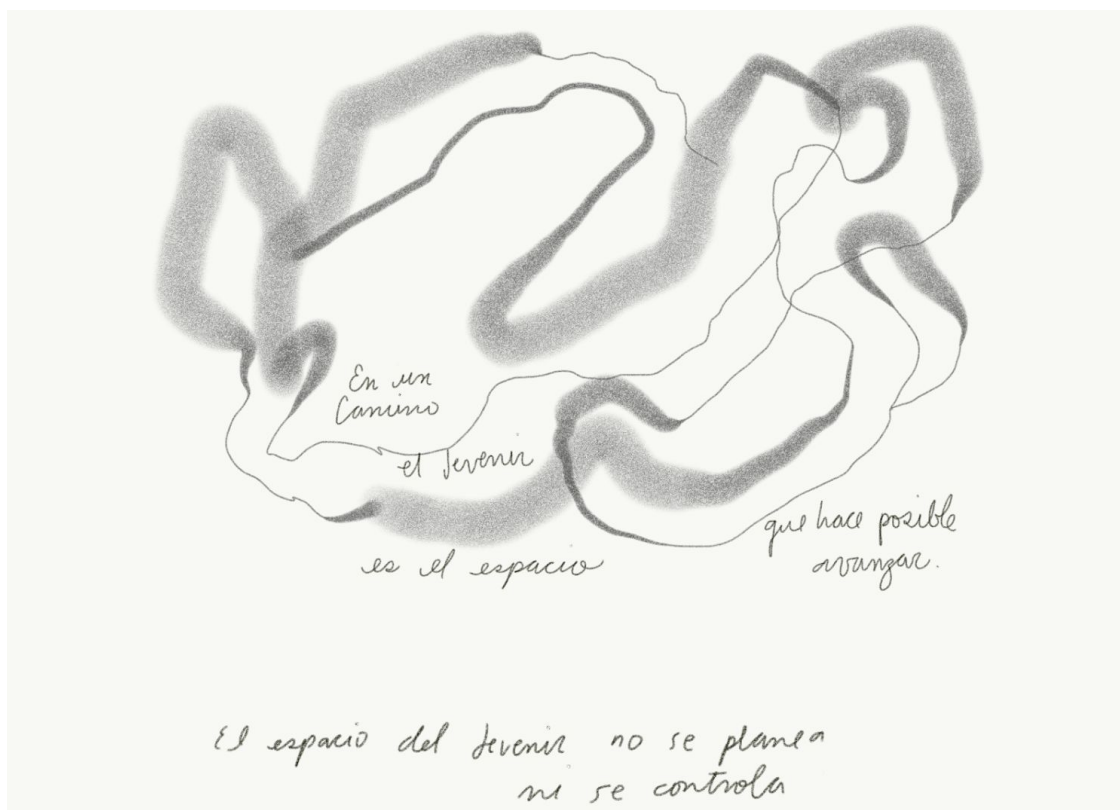 En un
Camino
el devenir
es el espacio
que hace posible
avanzar.
El espacio del devenir no se planea
ni se controla